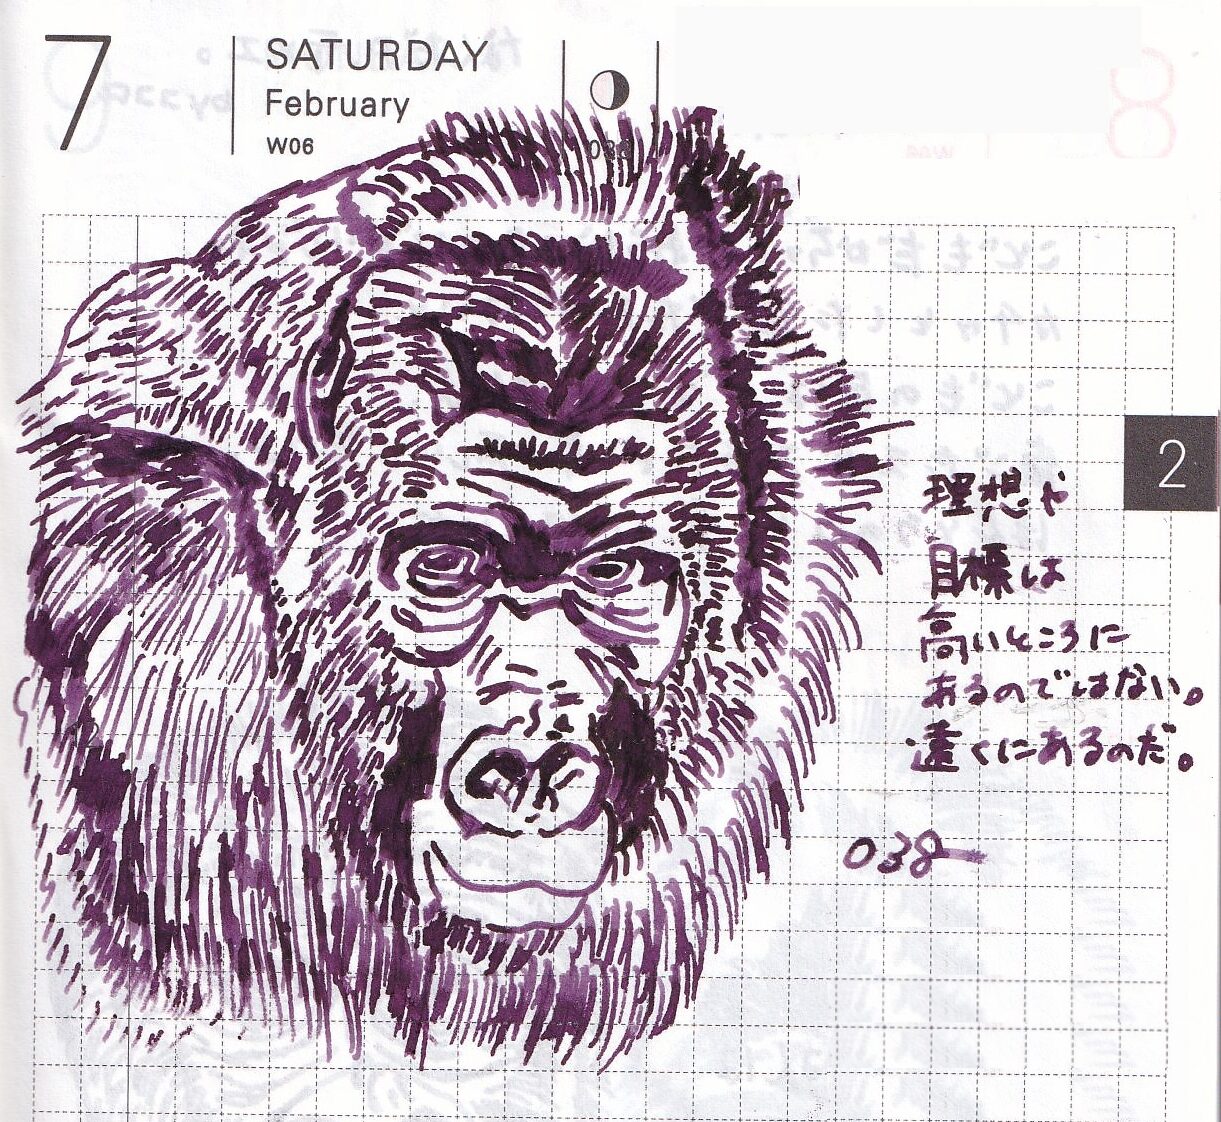 7
SATURDAY
February
W06
038
2
理想や
目標は
高いところに
あるのではない。
遠くにあるのだ。
038